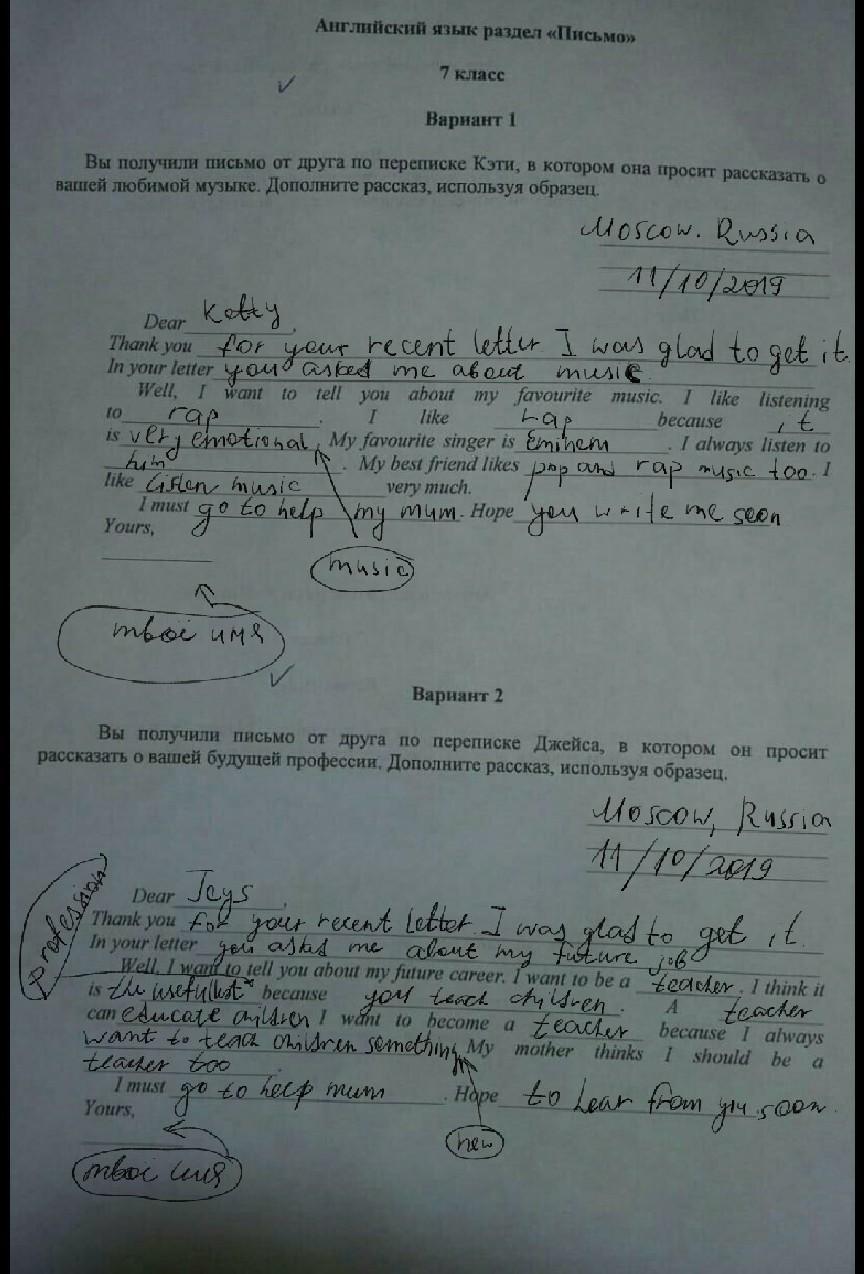 Английский язык раздел «Письмо»
7 класс
Вариант 1
Вы получили письмо от друга по переписке Кэти, в котором она просит рассказать о
вашей любимой музыке. Дополните рассказ, используя образец.
Moscow. Russia
11/10/2019
Dear Ketty,
Thank you for your recent letter I was glad to get it.
In your letter you asked me about music.
Well, I want to tell you about my favourite music. I like listening
to rap. I like rap because it
is very emotional, My favourite singer is Eminem. I always listen to
him. My best friend likes pop and rap music too. I
like listen music very much.
I must go to help my mum. Hope you write me soon
Yours,
music
твоё имя
Вариант 2
Вы получили письмо от друга по переписке Джейса, в котором он просит
рассказать о вашей будущей профессии. Дополните рассказ, используя образец.
Moscow, Russia
11/10/2019
Dear Jeys,
Thank you for your recent letter I was glad to get it.
In your letter you asked me about my future job
profession
Well, I want to tell you about my future career. I want to be a teacher. I think it
is the usefullest because you teach children. A teacher
can educate children I want to become a teacher because I always
want to teach children something My mother thinks I should be a
teacher too.
I must go to help mum. Hope to hear from you soon.
Yours,
new
твоё имя